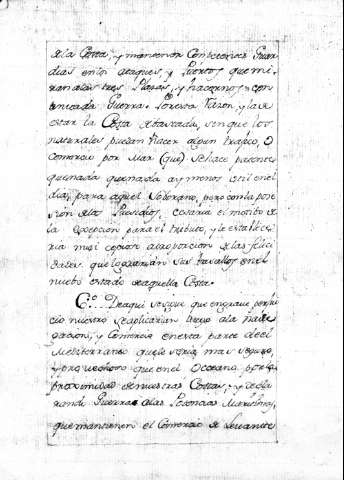 de la Costa, y mantener Con teson Guar
dias en los ataques, y Puertos que mi
ran a las tres Plazas, y hacernos con
tinuada Guerra. Lo resta Razon, y la de
estar la Costa devastada, sin que los
naturales puedan hacer algun trafico, o
Comercio por Mar (que) se hace patente
que nada quenada ay menos util en el
dia, para aquel Soberano, pero con la pose
sion de los Presidios, cesaria el motivo de
la excepcion para el tributo, y la estableze
ria mui copioso a proporcion de las felici
dades que lograrian sus Vasallos en el
nuevo estado de aquella Costa.
6.º De aqui se sigue que en grave perjui
cio nuestro se aplicarian luego a la Nave
gacion, y Comercio en esta parte de el
Mediterraneo que les seria mas seguro,
y provechoso que en el Oceano por la
proximidad de nuestras Costas; y de la
Guerra a las Potencias Maritimas,
que mantienen el Comercio de Levante